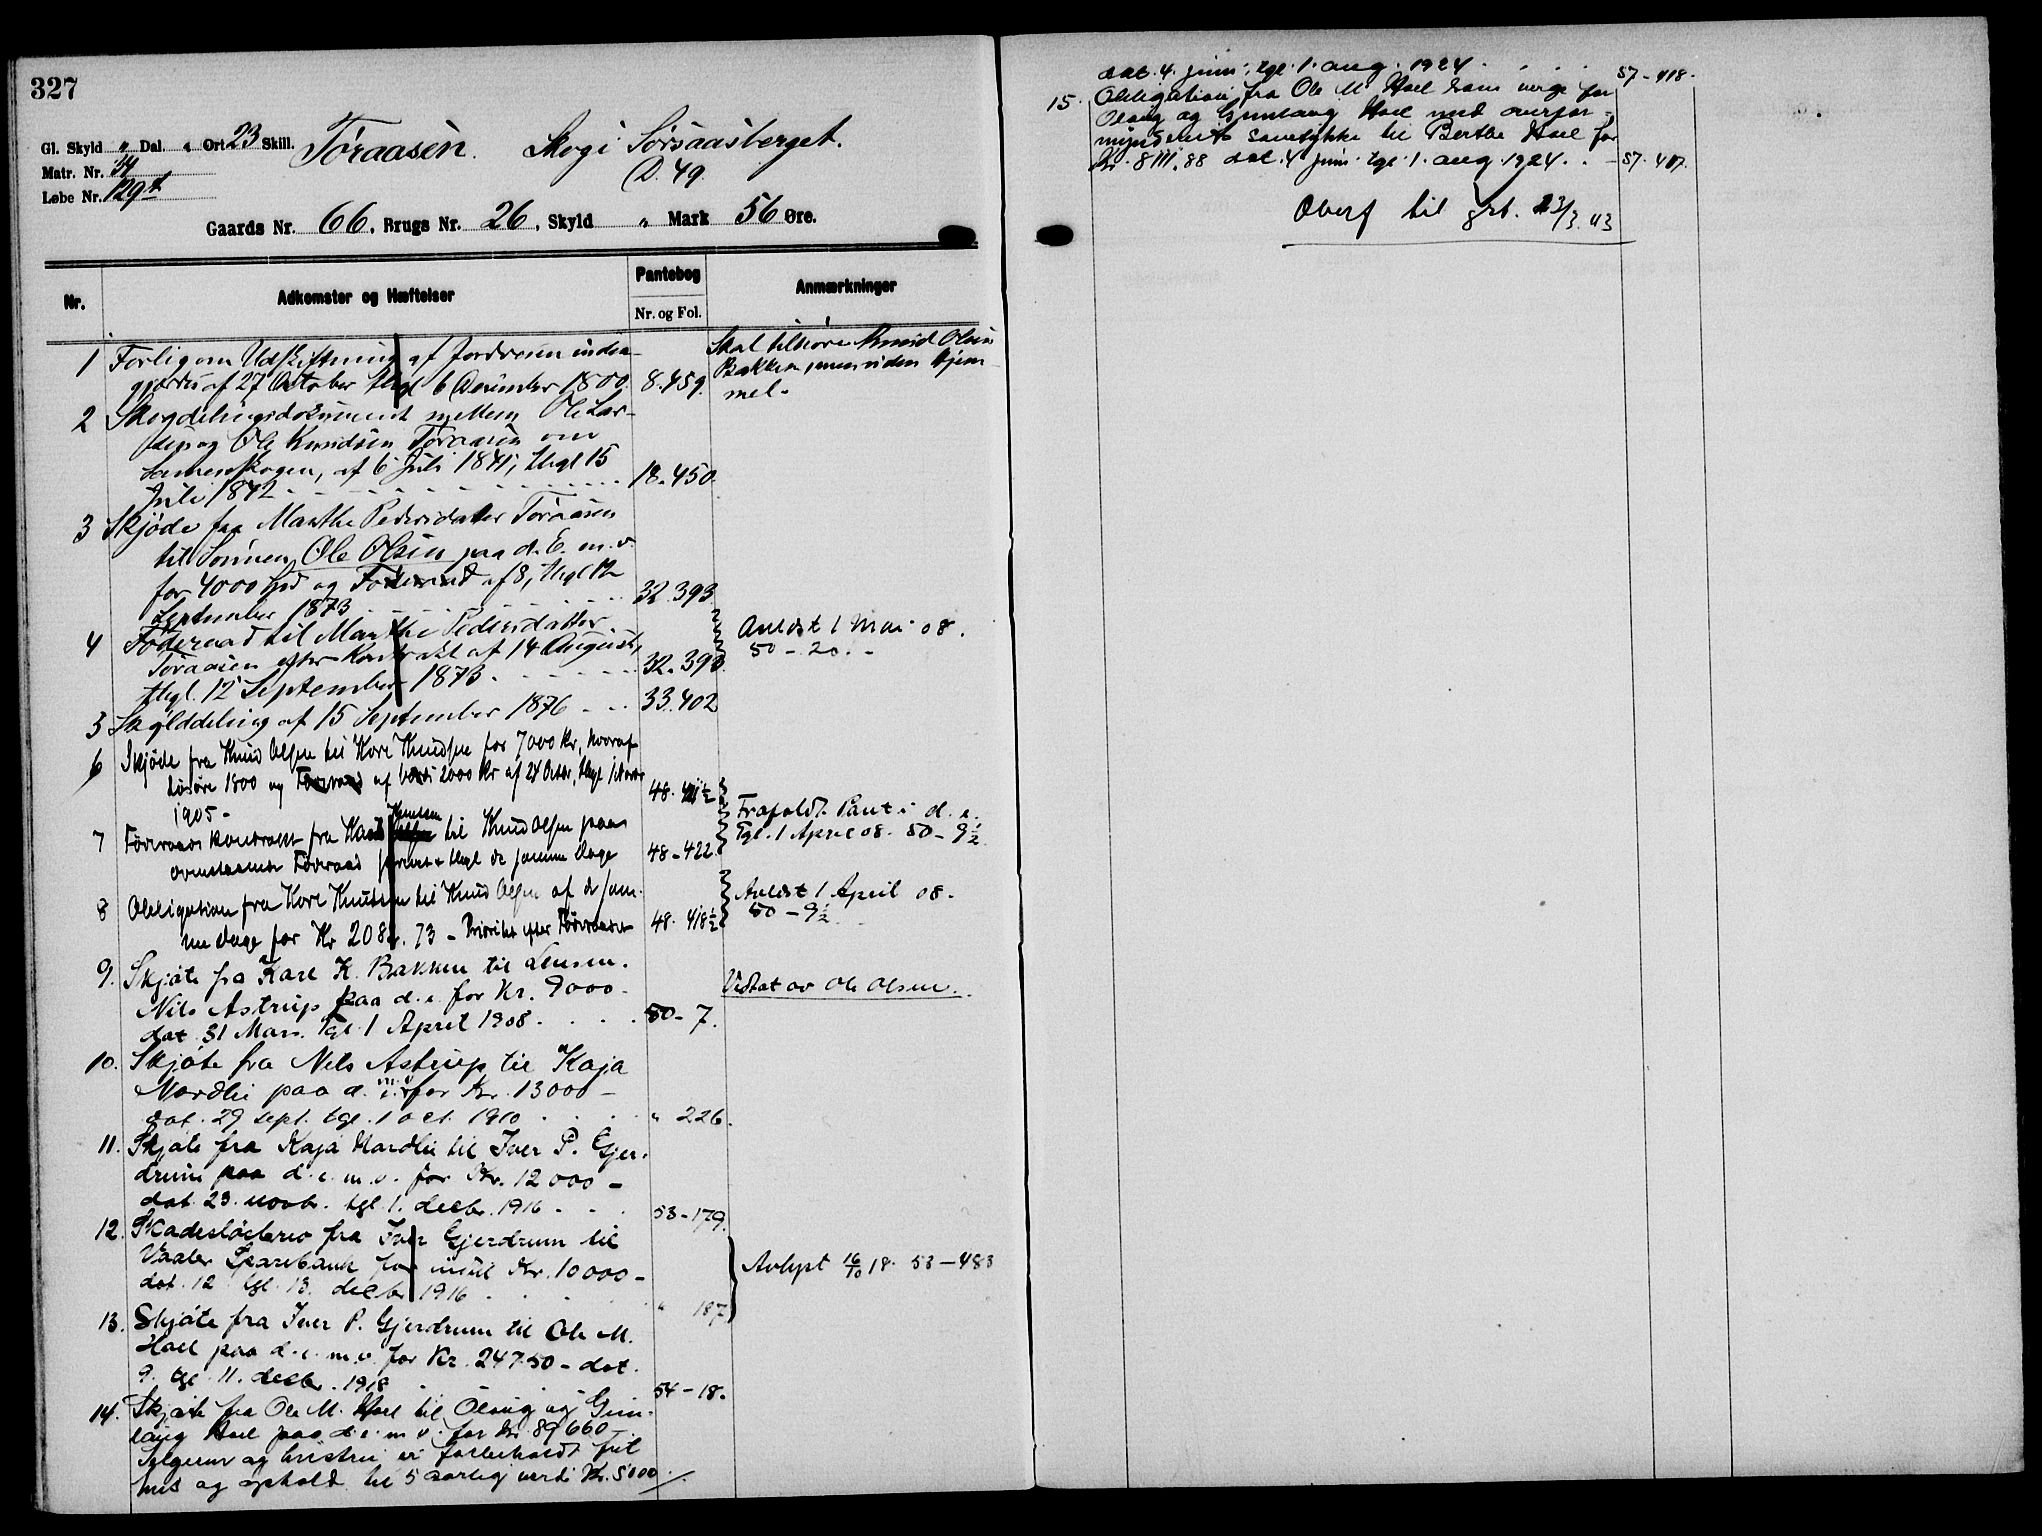 327
Gl. Skyld " Dal. " Ort 23 Skill. Töraasen. Skog i Sörsaasberget.
Matr. Nr. 34 D. 49.
Løbe Nr. 129
Gaards Nr. 66, Brugs Nr. 26, Skyld " Mark 56 Øre.
Nr. Adkomster og Hæftelser Pantebog Anmærkninger
Nr. og Fol.
1 Forlig om Udskiftning af Jordveien inden-
gjærdes af 27 Oktober thgl 6 December 1800. 8.459.
Skal tilhøre Knud Olsen
Bakken, men uden Hjem
mel.
2 Skogdelingsdokument mellem Ole Lar-
sen og Ole Knudsen Töraasen om
Sameieskogen, af 6 Juli 1841, thgl 15
Juli 1842 18.450.
3 Skjøde fra Marthe Pedersdatter Töraasen
til Sønnen Ole Olsen paa d. E. m. v.
for 4000 Spd og Föderaad af 8, thgl 12
September 1873 32.393
4 Föderaad til Marthe Pedersdatter
Töraasen efter Kontrakt af 14 August,
thgl. 12 September 1873. 32.393.
Avlæst 1 Mai 08.
50 - 20. -
5 Skylddeling af 15 September 1876 33.402
6 Skjøde fra Knud Olsen til Kore Knudsen for 7000 Kr, hvoraf
Løsøre 1800 og Föderaad af Værdi 2000 Kr af 24 Octbr, thgl 1 Novbr
1905 - 48.
7 Föderaads kontrakt fra Kore Knudsen til Knud Olsen paa
ovenstaaende Föderaad thgl de samme Dage 48-422.
Frafaldt Pant i d. e.
Tgl. 1 April 08. 50 - 9½
8 Obligation fra Kore Knudsen til Knud Olsen af de sam-
me Dage for Kr 208 . 73 - Prioritet efter Föderaadet 48. 418½
Avlæst 1 April 08.
50 - 9½
9. Skjøte fra Kare K. Bakken til Lensm.
Nils Astrup paa d. e. for Kr. 9000 -
dat. 31 Mars. Tgl. 1 April 1908. 50 - 7.
Vedtat av Ole Olsen.
10. Skjøte fra Nels Astrup til Kaja
Nordli paa d. e. m. v. for Kr. 13000 -
dat. 29 sept. tgl. 1 oct. 1910 " 226.
11. Skjøte fra Kaja Nordli til Iver P. Gjer-
drum paa d. e. m. v. for Kr. 12000 -
dat. 23. novbr. tgl. 1. decbr. 1916 - 53 - 179.
12. Skadesløsbrev fra Iver Gjerdrum til
Vaaler Sparebank for indtil Kr. 10000 -
dat. 12 tgl. 13. decbr 1916 " 187
Avlyst 16/10 18. 53 - 483
13. Skjøte fra Iver P. Gjerdrum til Ole M.
Hoel paa d. e. m. v. for Kr. 24750 - dat.
9. tgl. 11. decbr. 1918 54 - 18.
14. Skjøte fra Ole M. Hoel til Olaug og Gun-
laug Hoel paa d. e. m. v. for Kr. 89660 -
Selgeren og hustru er forbeholdt frit
hus og ophold til 5 aarlig verdi Kr. 5000.
dat. 4. juni, tgl. 1. aug. 1924. 57 - 418.
15. Obligation fra Ole M. Hoel som verge for
Olaug og Gunlaug Hoel med overfor-
mynderiets samtykke til Berthe Hoel for
Kr. dat. 4 juni. tgl. 1. aug. 1924. - 57. 417.
Overf til grb. 23/3. 43